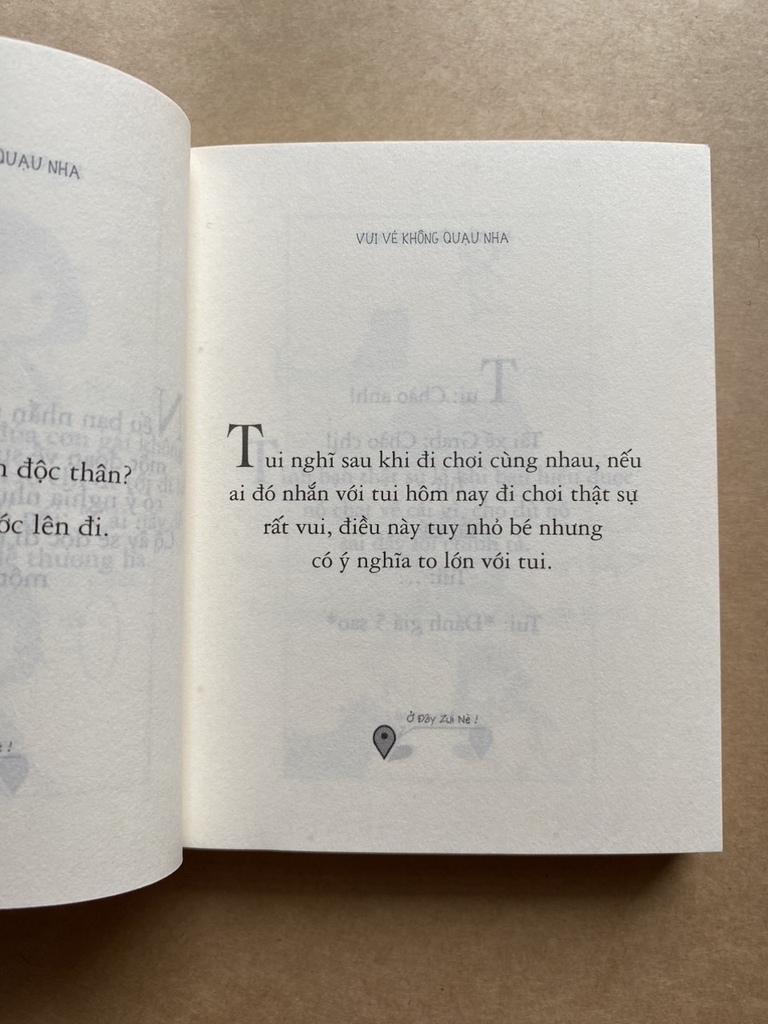 QUẠU NHA
độc thân?
lên đi.
VUI VẺ KHÔNG QUẠU NHA
Tui nghĩ sau khi đi chơi cùng nhau, nếu
ai đó nhắn với tui hôm nay đi chơi thật sự
rất vui, điều này tuy nhỏ bé nhưng
có ý nghĩa to lớn với tui.
Ở Đây Zui Nè !